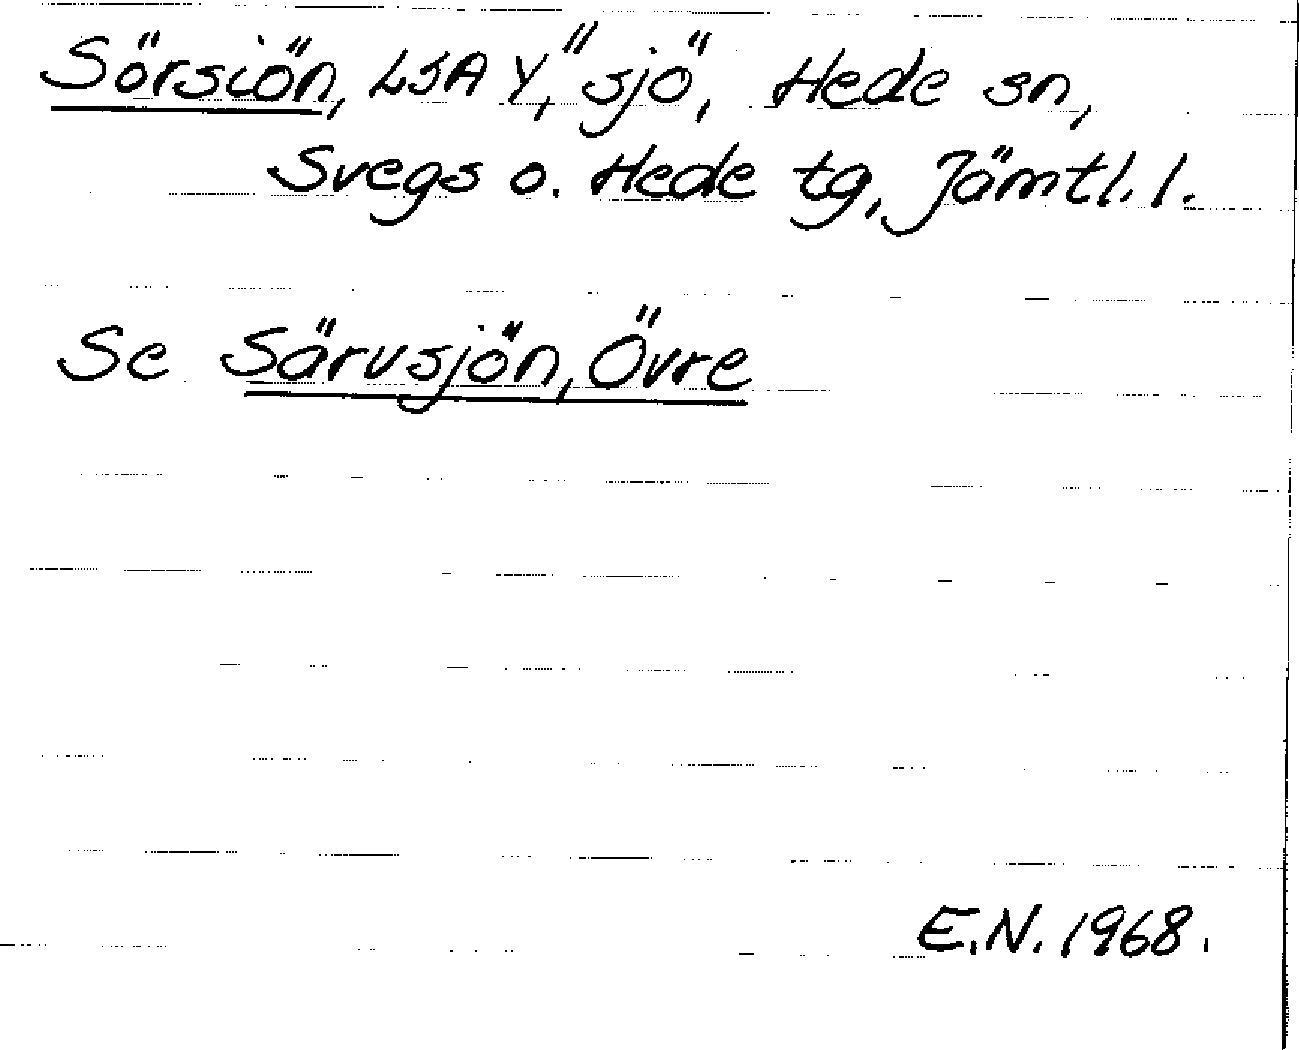 Sörsiön, LSA Y, "sjö", Hede sn,
Svegs o. Hede tg, Jämtl. l.
Se Särvsjön, Övre
E.N. 1968.